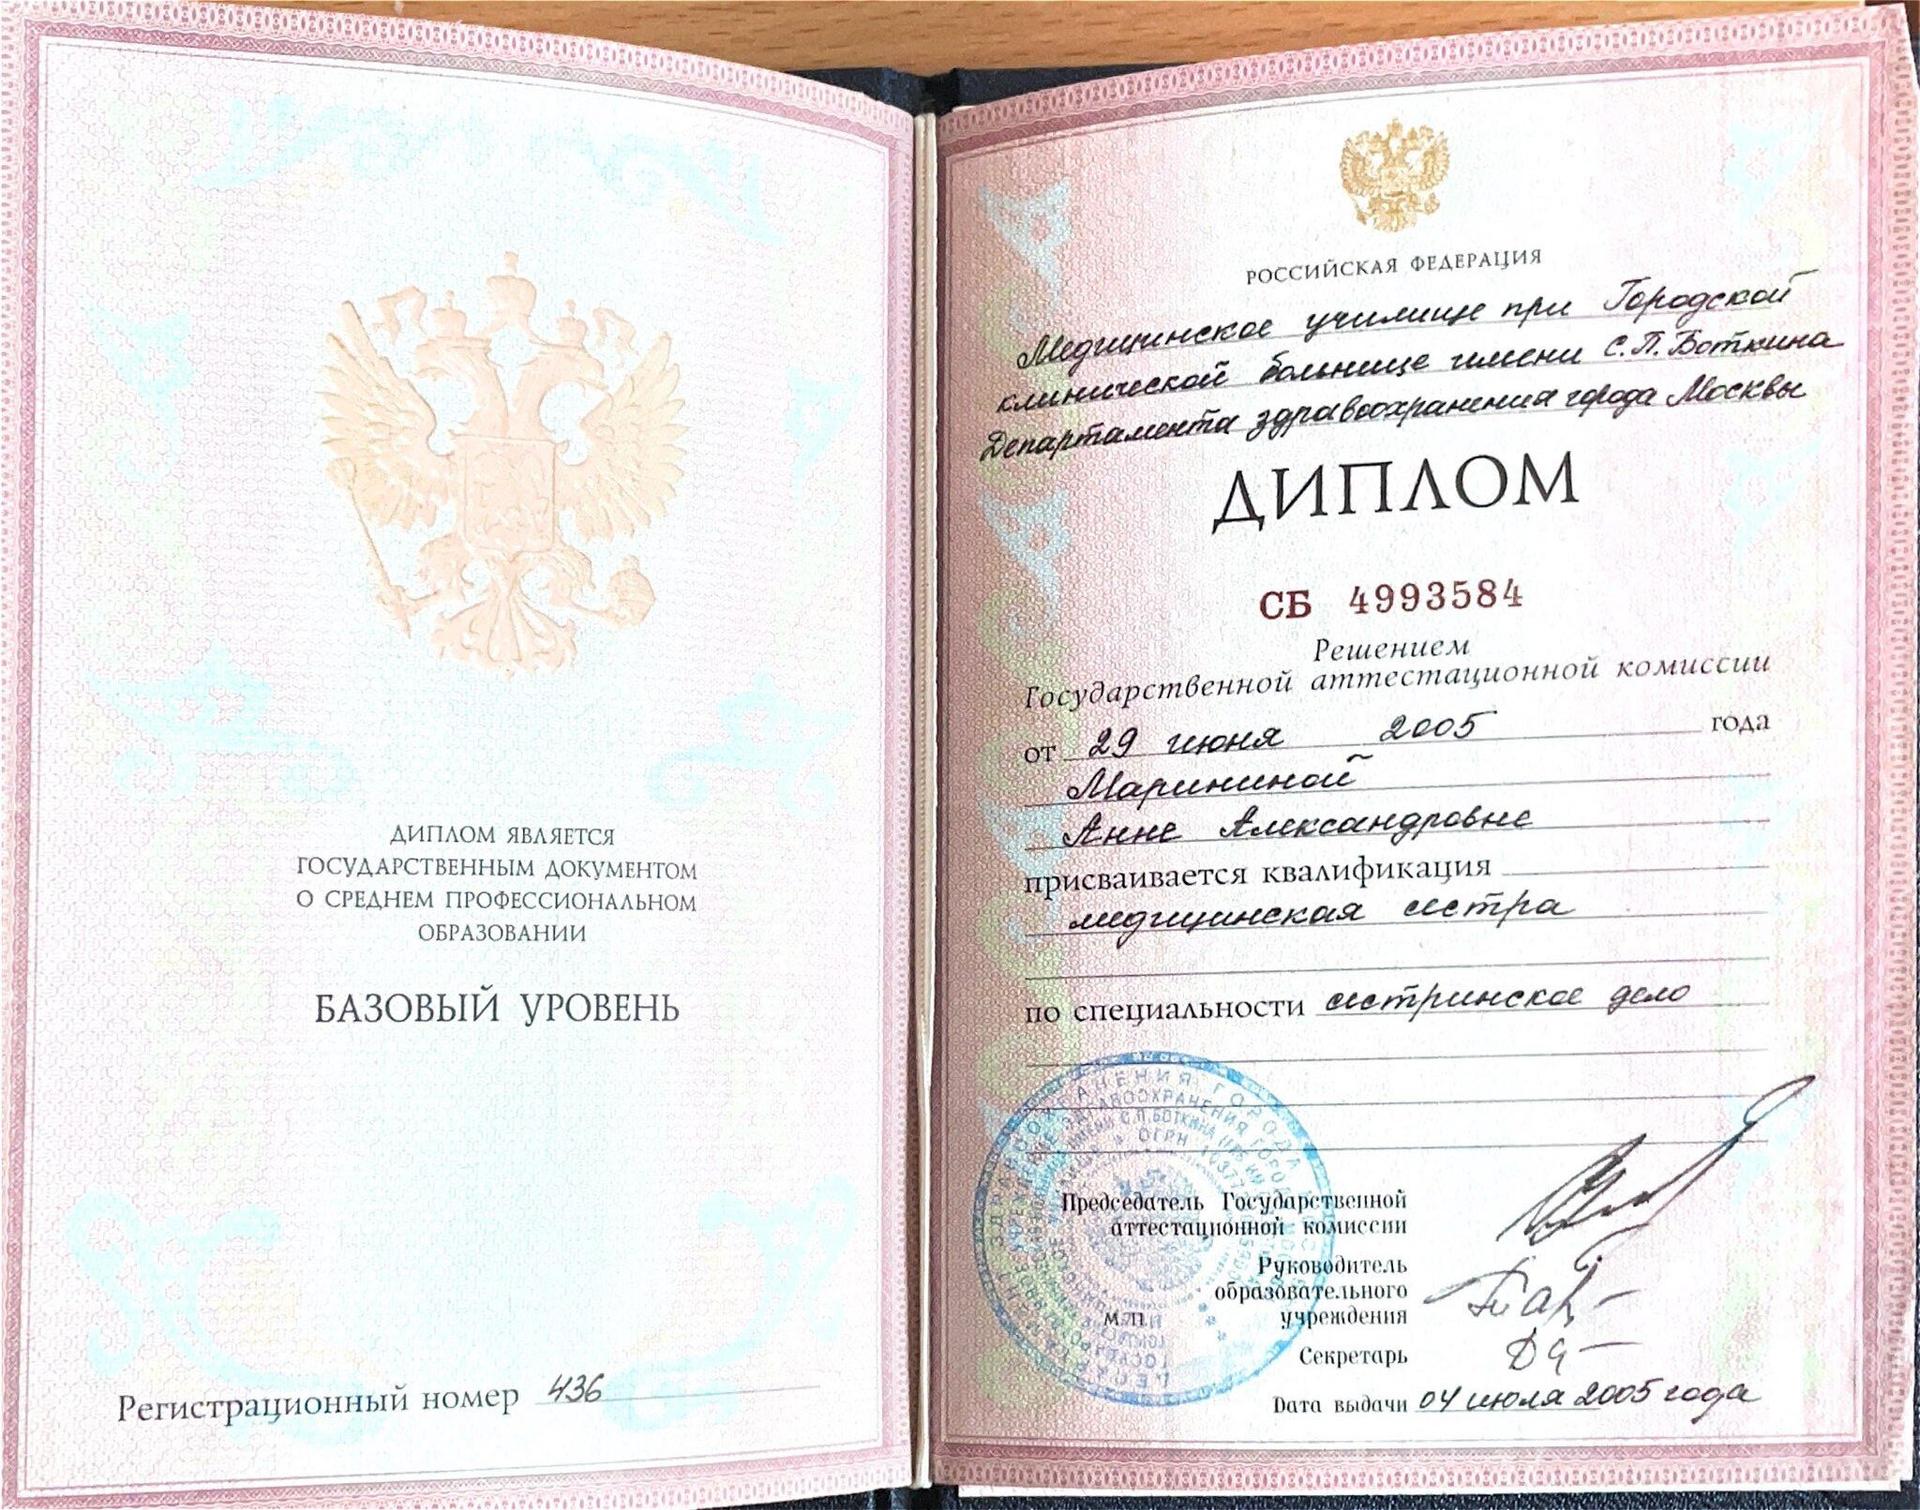 ДИПЛОМ ЯВЛЯЕТСЯ
ГОСУДАРСТВЕННЫМ ДОКУМЕНТОМ
О СРЕДНЕМ ПРОФЕССИОНАЛЬНОМ
ОБРАЗОВАНИИ
БАЗОВЫЙ УРОВЕНЬ
Регистрационный номер 436
РОССИЙСКАЯ ФЕДЕРАЦИЯ
Медицинское училище при Городской
клинической больнице имени С.П.Боткина
Департамента здравоохранения города Москвы
ДИПЛОМ
СБ 4993584
Решением
Государственной аттестационной комиссии
от 29 июня 2005 года
Марининой
Анне Александровне
присваивается квалификация
медицинская сестра
по специальности сестринское дело
Председатель Государственной
аттестационной комиссии
Руководитель
образовательного
учреждения
М.П.
Секретарь
Дата выдачи 04 июля 2005 года
ЗДРАВООХРАНЕНИЯ ГОРОДА
ЗДРАВООХРАНЕНИЯ ГОРОДА
ИМЕНИ С.П.БОТКИНА
ОГРН